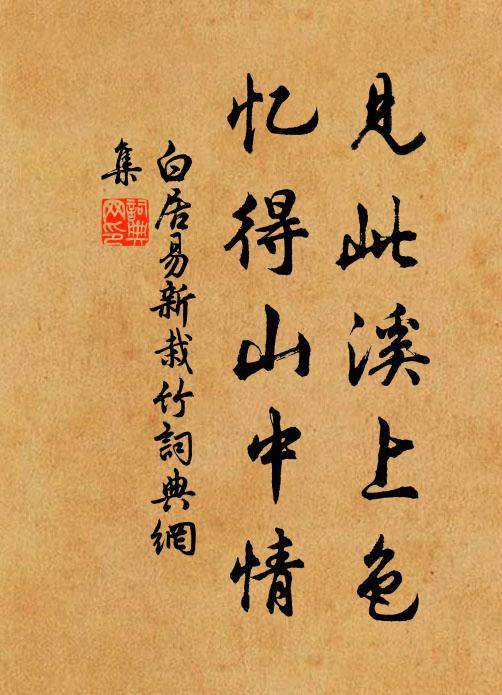 见此溪上色
忆得山中情
白居易新栽竹詞典網
集
詞典
网印